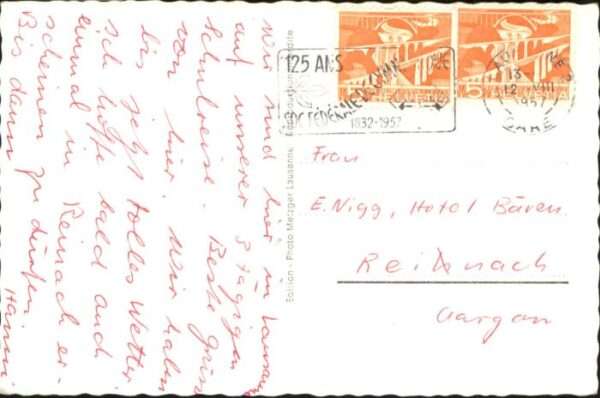 wir sind hier in Lausanne
auf unserer 3 tägigen
Schulreise. Beste Grüsse
von hier. Wir haben
bis jetzt tolles Wetter.
Ich hoffe bald auch
einmal in Reinach er-
scheinen zu dürfen.
Bis dann
Edition - Photo Metzger Lausanne
125 ANS
1832-1957
13
12 VIII
1957
GARE
Frau
E. Nigg, Hotel Bären.
Reinach
Aargau